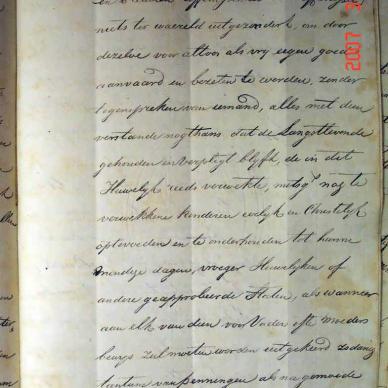 niets ter waereld uitgezonderd, om door
dezelve voor altoos als vry eigen goed
aanvaard en bezeten te worden, zonder
tegenspreken van iemand, alles met dien
verstande nogthans dat de Langstlevende
gehouden en verpligt blyft, de in dit
Huwelyk reeds verwekte, mitsg.s nog te
verwekken kinderen eerlyk en Christelyk
optevoeden en te onderhouden tot hunne
mondige dagen, vroeger Huwelyken of
andere geapprobeerde Staten, als wanneer
aan elk van dien voor Vader ofte Moeders
bewys zal moeten worden uitgekeerd zodanig
van penningen als na gemoede
2007